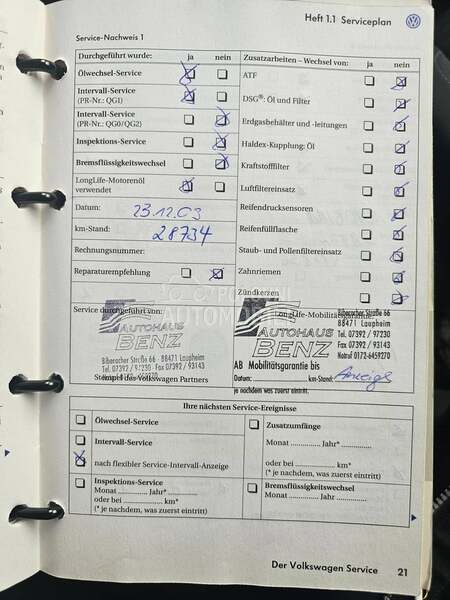 Heft 1.1 Serviceplan
Service-Nachweis 1
Durchgeführt wurde: ja nein
Ölwechsel-Service
Intervall-Service
(PR-Nr.: QG1)
Intervall-Service
(PR-Nr.: QG0/QG2)
Inspektions-Service
Bremsflüssigkeitswechsel
LongLife-Motorenöl
verwendet
Datum: 23.12.03
km-Stand: 28734
Rechnungsnummer:
Reparaturempfehlung
Service durchgeführt von:
AUTOHAUS
BENZ
Biberacher Straße 66
88471 Laupheim
Tel. 07392 / 97230 · Fax 07392 / 93143
Stempel des Volkswagen Partners
Zusatzarbeiten – Wechsel von: ja nein
ATF
DSG®: Öl und Filter
Erdgasbehälter und -leitungen
Haldex-Kupplung: Öl
Kraftstofffilter
Luftfiltereinsatz
Reifendrucksensoren
Reifenfüllflasche
Staub- und Pollenfiltereinsatz
Zahnriemen
Zündkerzen
LongLife-Mobilitätsgarantie:
AUTOHAUS
BENZ
Biberacher Straße 66
88471 Laupheim
Tel. 07392 / 97230
Fax 07392 / 93143
Notruf 0172-6459270
AB Mobilitätsgarantie bis
Datum: km-Stand: Anzeige
je nachdem was zuerst eintritt
Ihre nächsten Service-Ereignisse
Ölwechsel-Service
Intervall-Service
nach flexibler Service-Intervall-Anzeige
Inspektions-Service
Monat .............. Jahr*..............
oder bei .............. km*
(* je nachdem, was zuerst eintritt)
Zusatzumfänge
Monat .............. Jahr*..............
oder bei .............. km*
(* je nachdem, was zuerst eintritt)
Bremsflüssigkeitswechsel
Monat .............. Jahr..............
Der Volkswagen Service 21